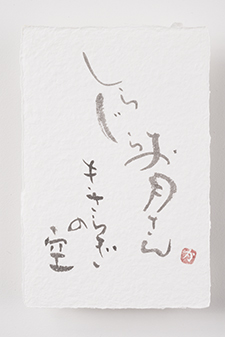 しらじら
お月さん
きさらぎ
の
空